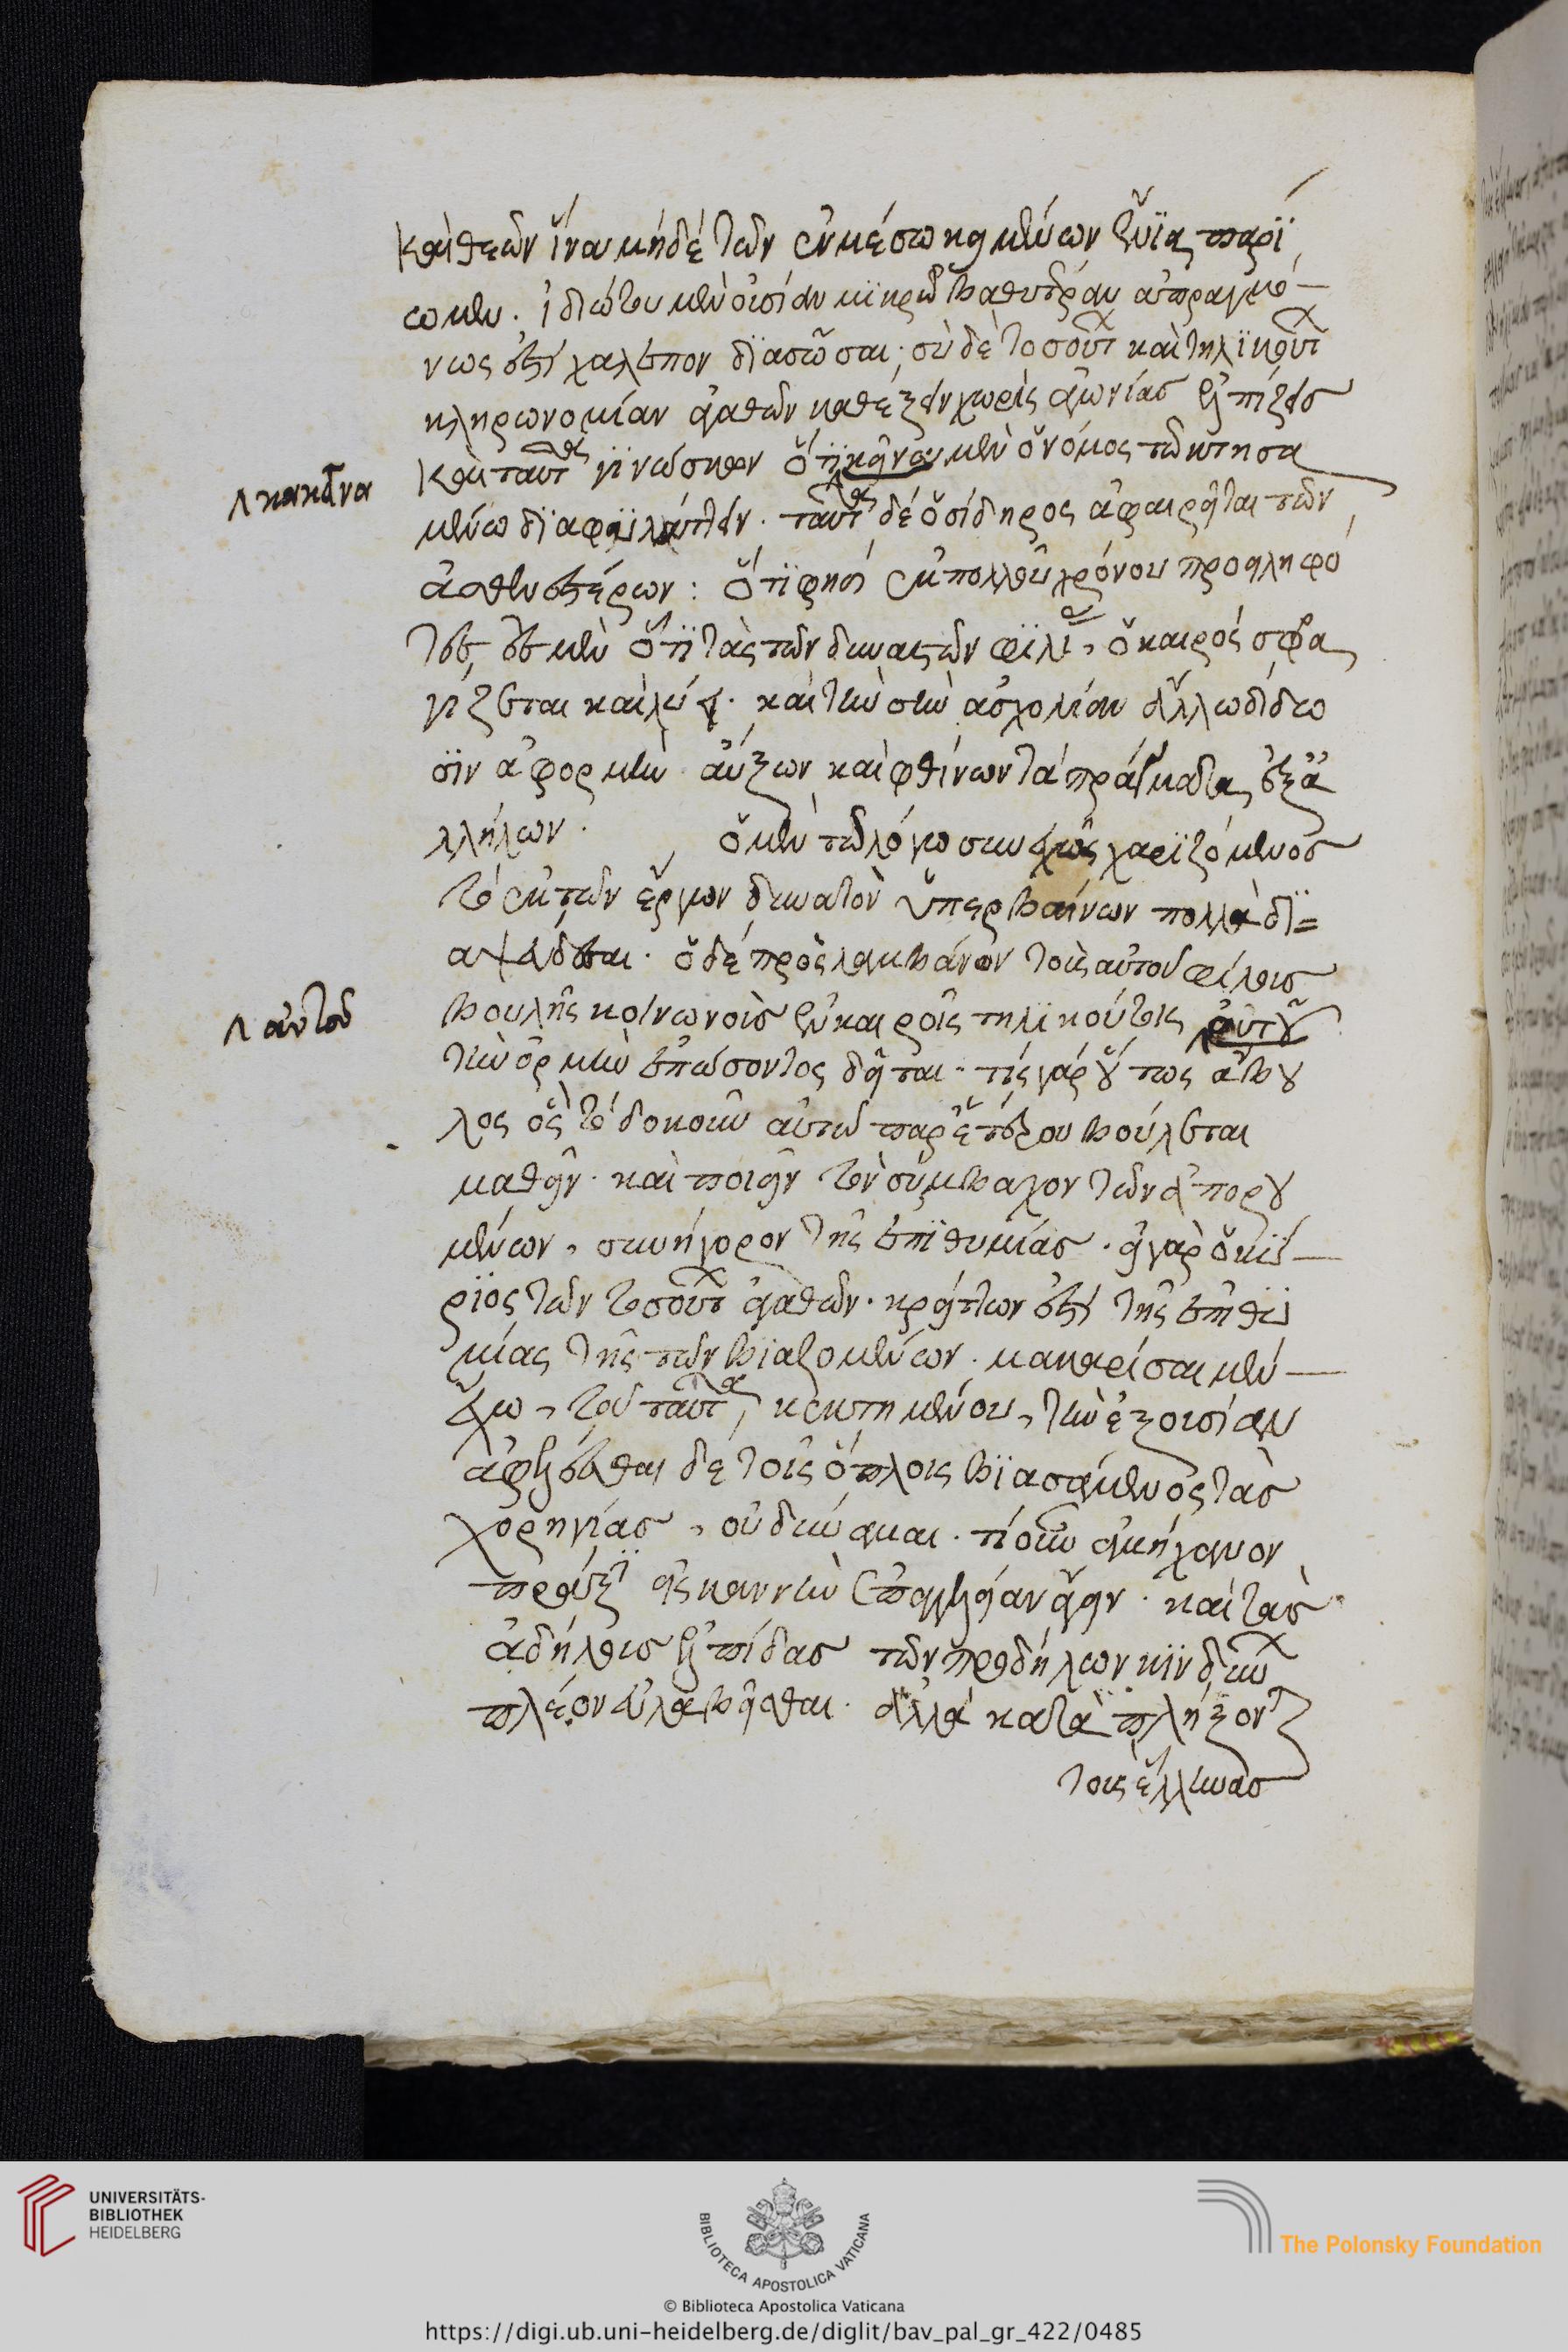 καὶ θεῶν ἵνα μηδὲ τῶν ἐν μέσω κειμένων εὐΐας παρΐ
ωμεν. ἰδιώτου μὲν οὐσίαν μϊκρῶ βαθυτέραν ἀπραγμό
νως ἐστὶ χαλεπὸν δϊασῶσαι· σὺ δὲ τοσούτ καὶ τηλϊκούτ
κληρωνομίαν ἀγαθῶν καθέξειν χωρὶς ἀγωνίας ἐλπίζεις
καὶ ταῦτα γϊνώσκων ὅτϊ κεῖνα μὲν ὁ νόμος τῶ κτησα
Λ κακεῖνα
μένω δϊαφϋλάττειν. ταῦτα δὲ ὁ σίδηρος ἀφαιρεῖται τῶν
ἀσθενεστέρων: ὅτϊ φησὶ ἐκ πολλοῦ χρόνου προειληφό
τες ἐσμὲν ὅτϊ τὰς τῶν δυναστῶν φϊλί, ὁ καιρός σφρα
γίζεται καὶ λύει. καὶ τὴν σὴν ἀσχολίαν ἄλλω δίδω
σϊν ἀφορμὴν αὔξων καὶ φθίνων τὰ πράγματα, ἐξ ἀ
λλήλων. ὁ μὲν τῶ λόγω συνεχῶς χαρϊζόμενος
τὸ ἐκ τῶν ἔργων δυνατὸν ὑπερβαίνων πολλὰ δϊ=
αψεύδεται. ὁ δὲ προσλαμβάνων τοῖς αὐτοῦ φίλοις
βουλῆς κοινωνοῖς εὐκαιροῖς τηλϊκούτοις αὐτοῦ
Λ αὐτοῦ
τὴν ὁρμὴν ἐπώσοντος δεῖται. τίς γὰρ οὕτως ἄβου
λος ὃς τὸ δοκοῦν αὐτῶ παρ' ἑτέρου βούλεται
μαθεῖν. καὶ ποιεῖν τὸν σύμβαχον τῶν ἀπορου
μένων, συνήγορον τῆς ἐπϊθυμίας. εἰ γὰρ ὁ κύ
ρϊος τῶν τοσούτ ἀγαθῶν. κρείττων ἐστὶ τῆς ἐπιθϋ
μίας τῆς τῶν βιαζομένων. μακαρίσαι μὲν
ἔχω, τοῦ ταῦτα, κεκτημένου, τὴν ἐξουσίαν
ἀφελέσθαι δὲ τοῖς ὅπλοις βϊασάμενος τὰς
χορηγίας, οὐ δύναμαι. τί οὖν ἀμήχανον
πρᾶξϊ εἰς κοινὴν ἐπαγγελίαν ἄγειν. καὶ τὰς
ἀδήλοις ἐλπίδας τῶν προδήλων κϊνδύν
πλέον εὐλαβεῖσθαι. ἀλλὰ καταπλήξον
τοις ἕλληνας
UNIVERSITÄTS-
BIBLIOTHEK
HEIDELBERG
BIBLIOTECA APOSTOLICA VATICANA
The Polonsky Foundation
© Biblioteca Apostolica Vaticana
https://digi.ub.uni-heidelberg.de/diglit/bav_pal_gr_422/0485